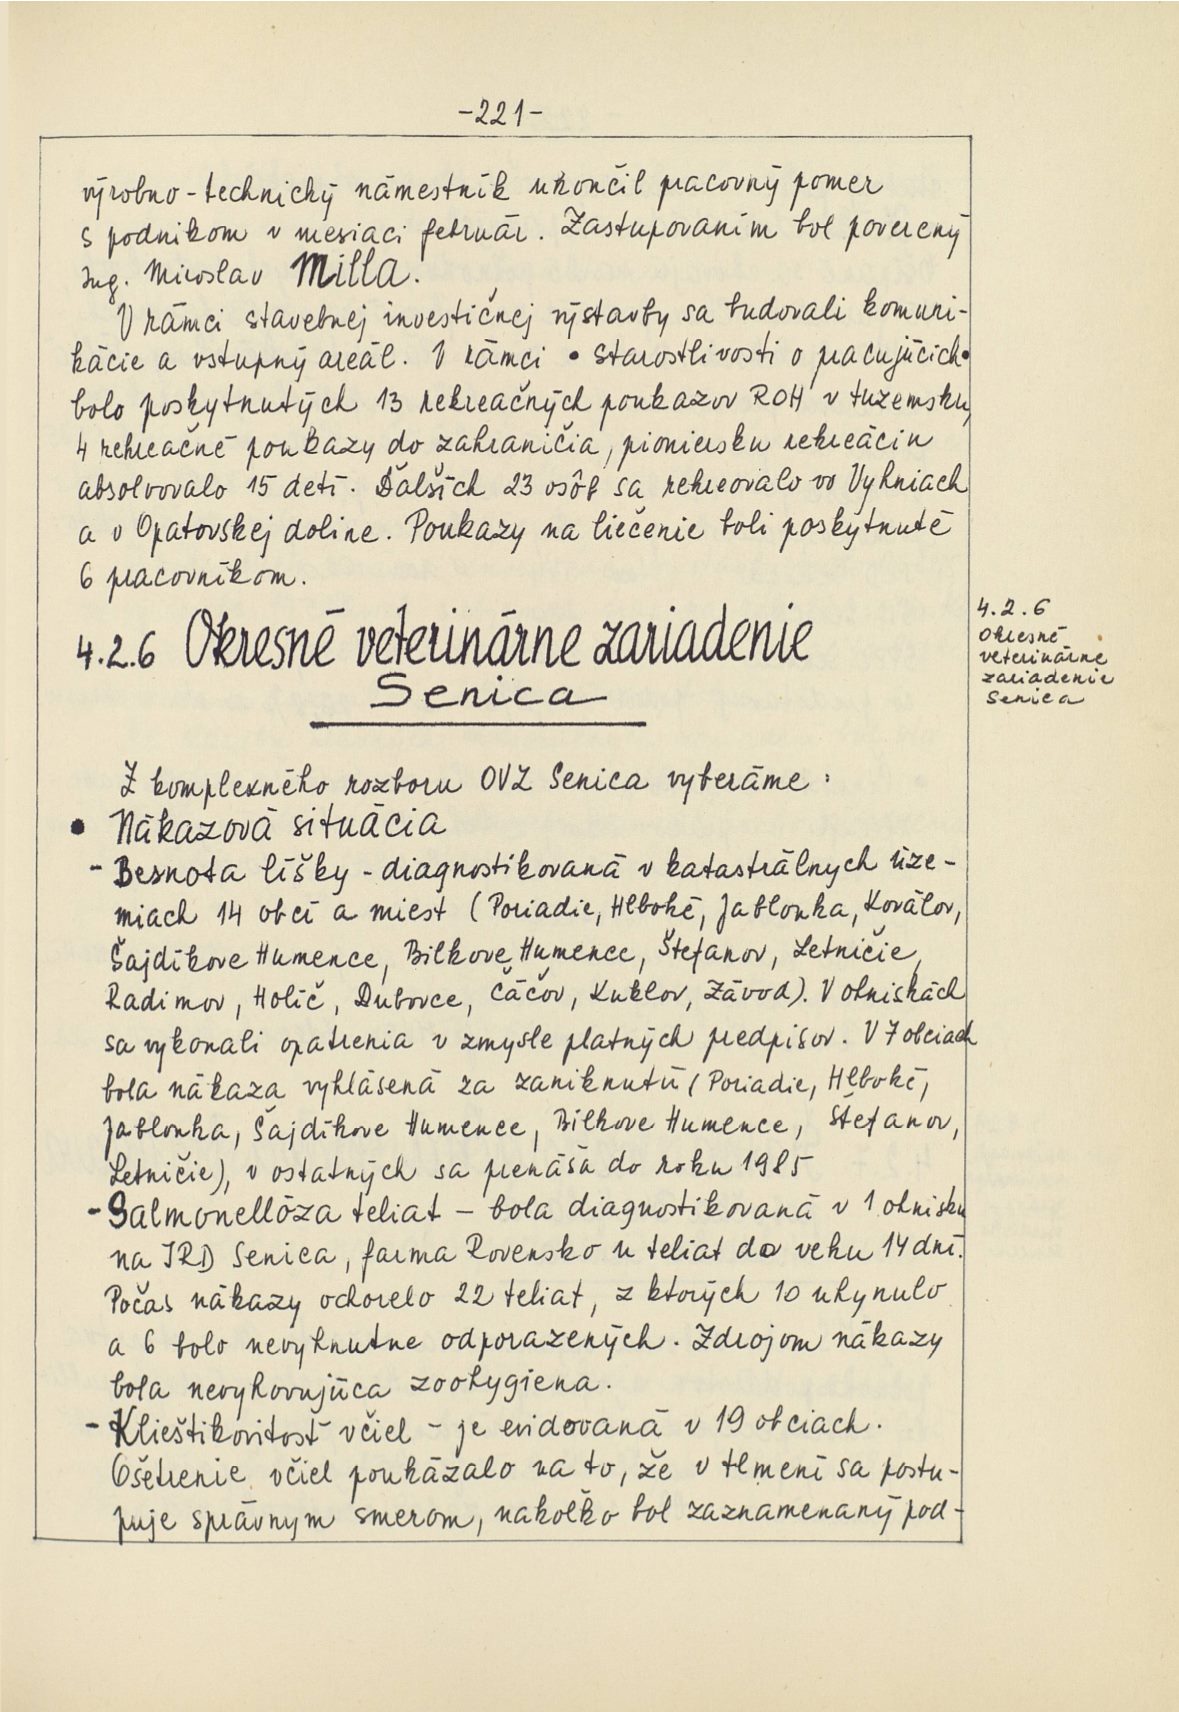 -221-
výrobno-technický námestník ukončil pracovný pomer
s podnikom v mesiaci február. Zastupovaním bol poverený
Ing. Miroslav Milla.
V rámci stavebnej investičnej výstavby sa budovali komuni-
kácie a vstupný areál. V rámci • starostlivosti o pracujúcich •
bolo poskytnutých 13 rekreačných poukazov ROH v tuzemsku,
4 rekreačné poukazy do zahraničia, pioniersku rekreáciu
absolvovalo 15 detí. Ďalších 23 osôb sa rekreovalo vo Vyhniach
a v Opatovskej doline. Poukazy na liečenie boli poskytnuté
6 pracovníkom.
4.2.6 Okresné veterinárne zariadenie
Senica
4.2.6
Okresné
veterinárne
zariadenie
Senica
Z komplexného rozboru OVZ Senica vyberáme:
• Nákazová situácia
- Besnota líšky - diagnostikovaná v katastrálnych úze-
miach 14 obcí a miest (Poriadie, Hlboké, Jablonka, Koválov,
Šajdíkove Humence, Bílkove Humence, Štefanov, Letničie,
Radimov, Holíč, Dubovce, Čáčov, Kuklov, Závod). V ohniskách
sa vykonali opatrenia v zmysle platných predpisov. V 7 obciach
bola nákaza vyhlásená za zaniknutú (Poriadie, Hlboké,
Jablonka, Šajdíkove Humence, Bílkove Humence, Štefanov,
Letničie), v ostatných sa prenáša do roku 1985
- Salmonellóza teliat - bola diagnostikovaná v 1 ohnisku
na JRD Senica, farma Rovensko u teliat do veku 14 dní.
Počas nákazy ochorelo 22 teliat, z ktorých 10 uhynulo
a 6 bolo nevyhnutne odporazených. Zdrojom nákazy
bola nevyhovujúca zoohygiena.
- Klieštikovitosť včiel - je evidovaná v 19 obciach.
Ošetrenie včiel poukázalo na to, že v tlmení sa postu-
puje správnym smerom, nakoľko bol zaznamenaný pod-